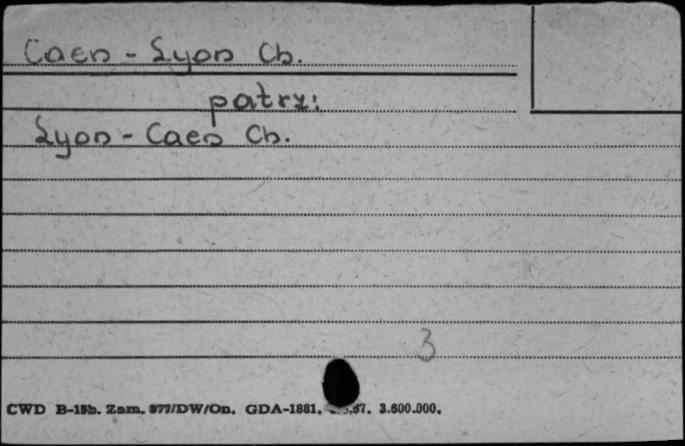 Caen - Lyon Ch.
patrz:
Lyon - Caen Ch.
3
CWD B-15b. Zam. 877/DW/On. GDA-1881. 67. 3.600.000.